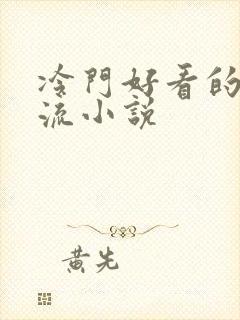 冷門好看的
流小説
黄先